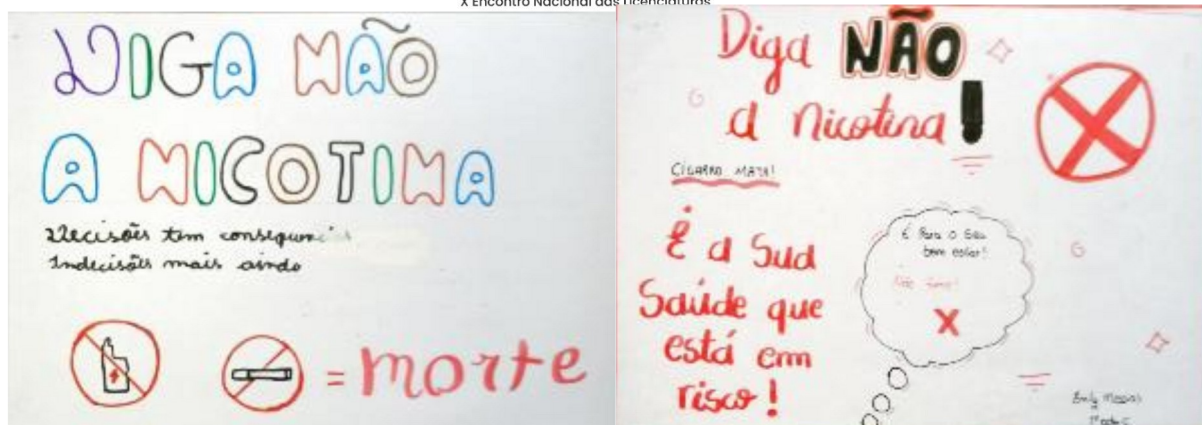 X Encontro Nacional das Licenciaturas
DIGA NÃO
A NICOTINA
Decisões tem
Indecisões mais ainda
= morte
Diga NÃO
a Nicotina!
CIGARRO MATA!
É a Sua
Saúde que
está em
risco!
É Para o Seu
bem estar!
X